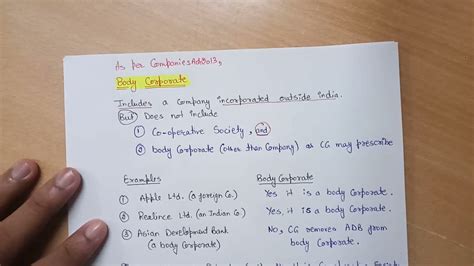 As per Companies Act 2013,
Body Corporate
Includes a Company incorporated outside india.
But Does not include
① Co-operative Society, and
② body Corporate (other than Company) as CG may prescribe
Examples Body Corporate
① Apple Ltd. (a foreign Co.) Yes it is a body Corporate.
② Realince Ltd. (an Indian Co.) Yes it is a body Corporate.
③ Asian Development Bank No, CG removes ADB from
(a body Corporate) body Corporate.